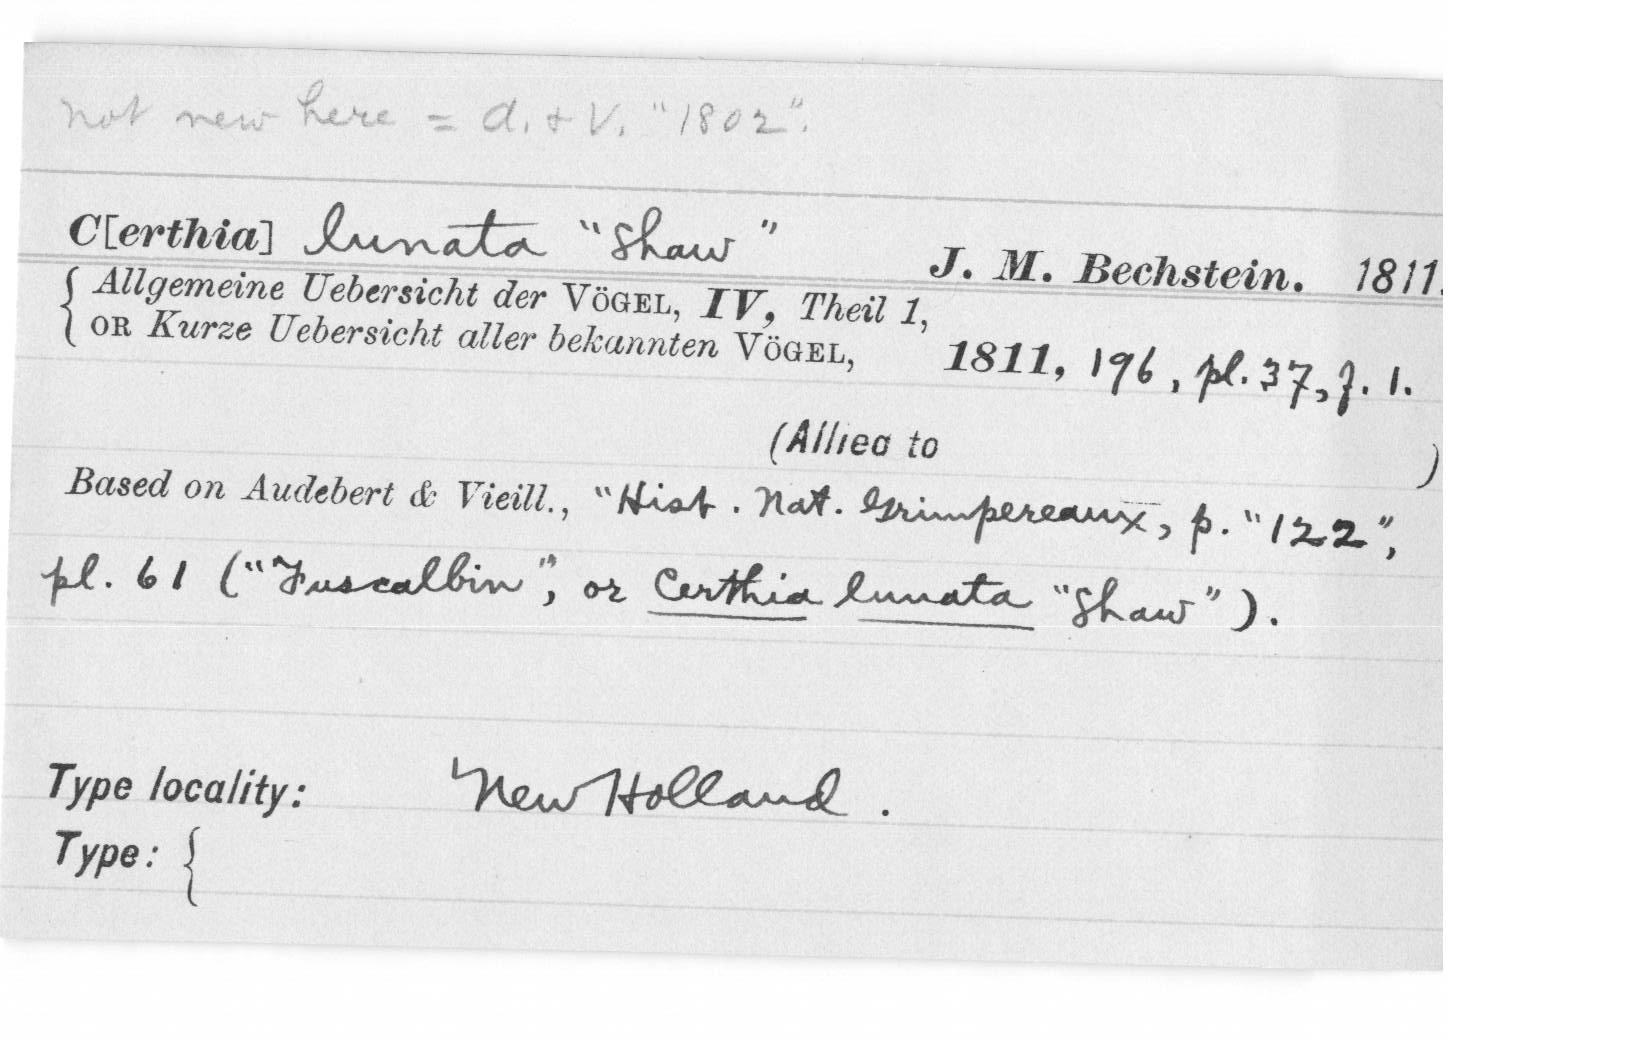 not new here = A. + V. "1802".
C[erthia] lunata "Shaw" J. M. Bechstein. 1811.
{ Allgemeine Uebersicht der VÖGEL, IV, Theil 1,
OR Kurze Uebersicht aller bekannten VÖGEL, 1811, 196, pl. 37, f. 1.
(Allied to )
Based on Audebert & Vieill., "Hist. Nat. Grimpereaux, p. "122",
pl. 61 ("Fuscalbin", or Certhia lunata "Shaw").
Type locality: New Holland.
Type: {